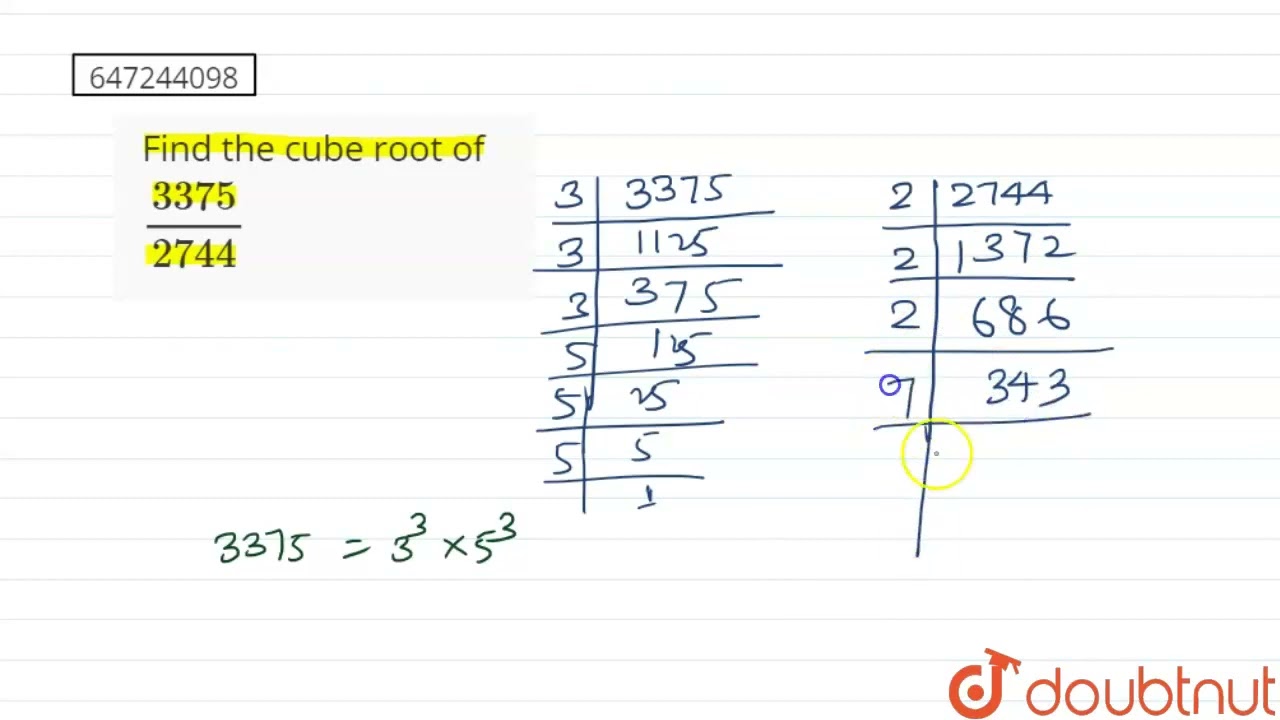 647244098
Find the cube root of
3375
2744
3 3375
3 1125
3 375
5 125
5 25
5 5
1
2 2744
2 1372
2 686
7 343
3375 = 3³ × 5³
doubtnut